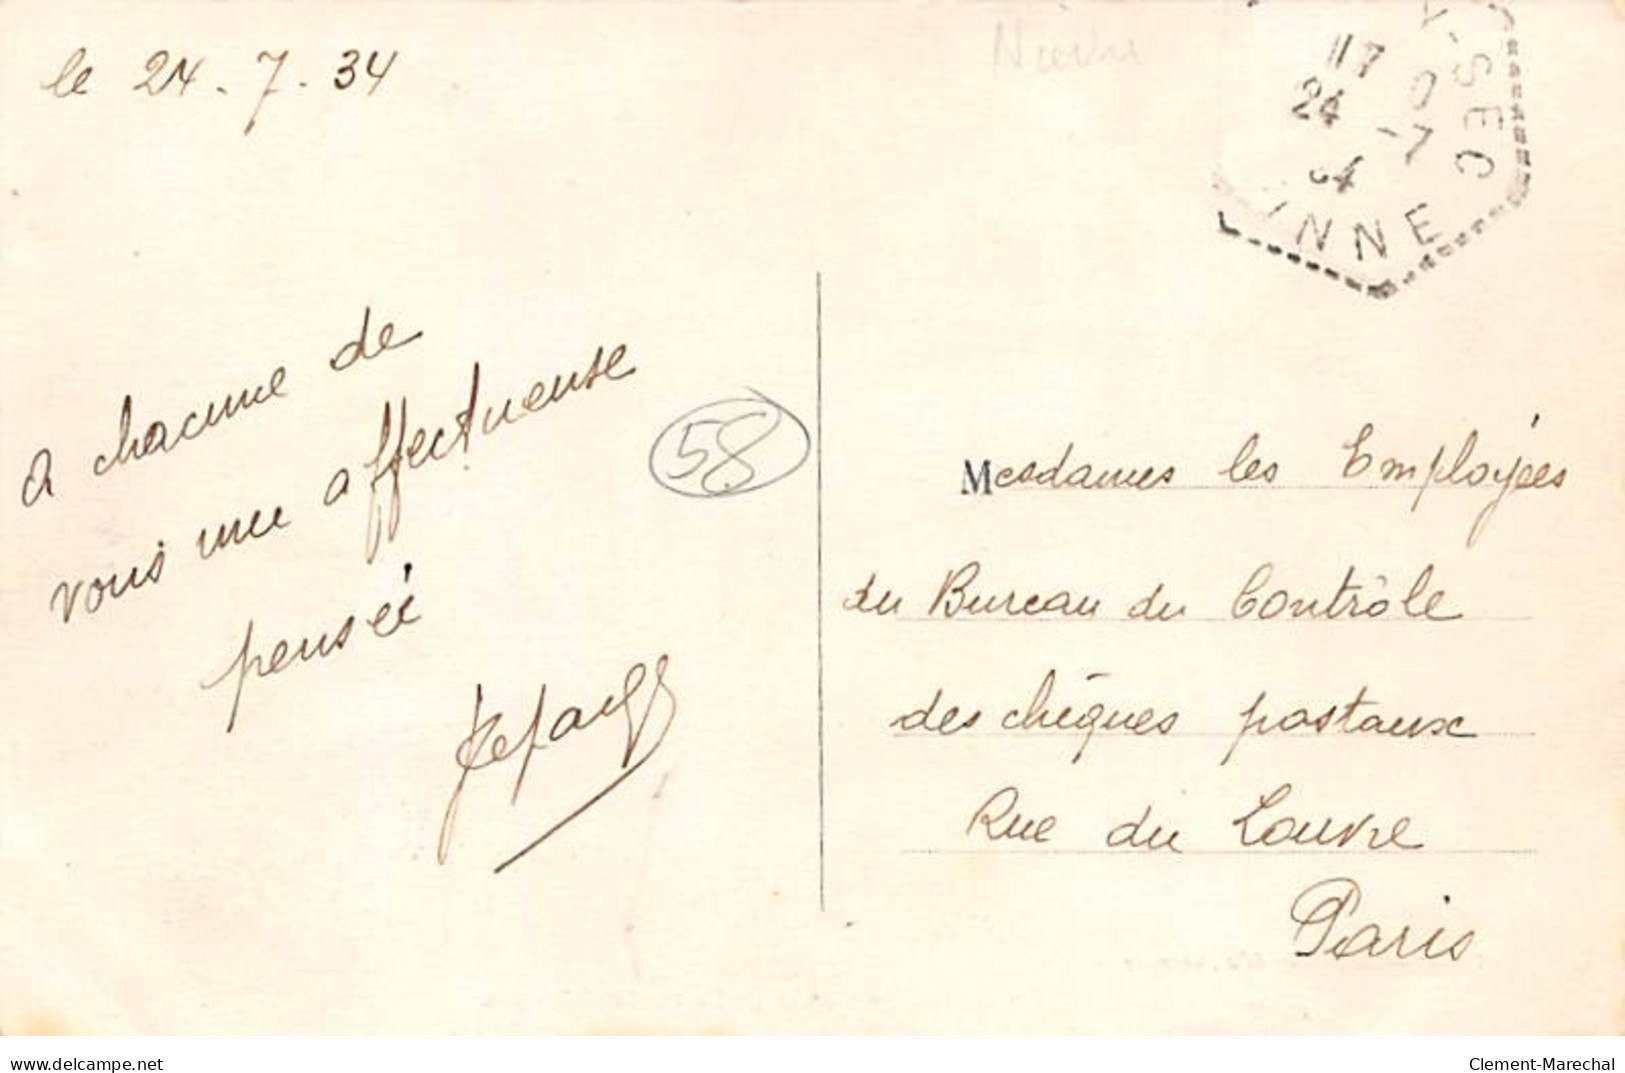 le 24.7.34
Nièvre
Y-SEC
117 0
24 -7
34
NNE
a chacune de
vous une affectueuse
pensée
58
Mesdames les Employées
du Bureau du Contrôle
des chèques postaux
Rue du Louvre
Paris
delcampe.net
Clement-Marechal